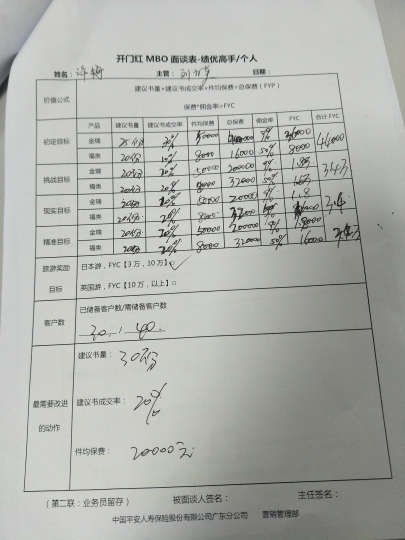 开门红 MBO 面谈表-绩优高手/个人
姓名： 主管： 日期：
价值公式 建议书量*建议书成交率*件均保费=总保费（FYP）
保费*佣金率=FYC
产品 建议书量 建议书成交率 件均保费 总保费 佣金率 FYC 合计 FYC
初定目标 金瑞 25份 50000 9% 44000
福类 20份 8000 16000 50% 8000
挑战目标 金瑞 20份 20% 50000 200000 9% 1.8万 3.4万
福类 20份 20% 8000 32000 50% 1.6万
现实目标 金瑞 20份 20% 50000 20000 9% 1.8 3.4
福类 20份 20% 8000 32000
精准目标 金瑞 20份 20% 50000 200000 9% 1.8000 3.4万
福类 20份 20% 8000 32000 50% 16000
旅游奖励 日本游，FYC【3 万，10 万】□ ✓
目标 英国游，FYC【10 万，以上】□
客户数 已储备客户数/需储备客户数
30 / 40
建议书量： 30份
最需要改进 建议书成交率： 20%
的动作
件均保费： 20000元
（第二联：业务员留存） 被面谈人签名： 主任签名：
中国平安人寿保险股份有限公司广东分公司 营销管理部